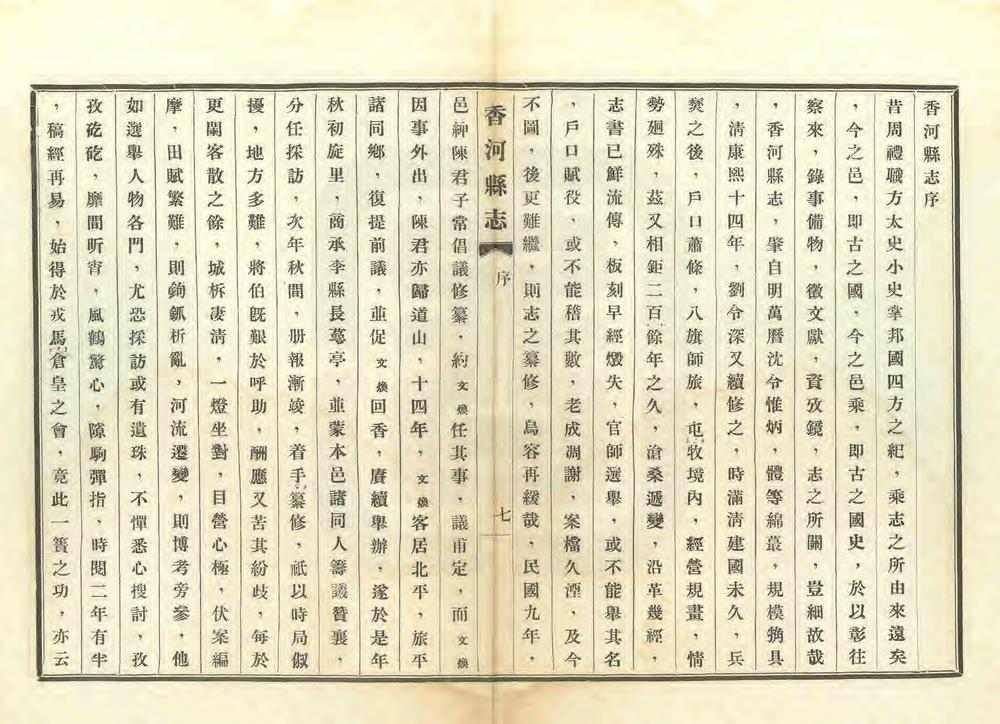 香河縣志序
昔周禮職方太史小史掌邦國四方之紀，乘志之所由來遠矣
，今之邑，即古之國，今之邑乘，即古之國史，於以彰往
察來，錄事備物，徵文獻，資攷鏡，志之所關，豈細故哉
，香河縣志，肇自明萬曆沈令惟炳，體等綿蕞，規模觕具
，淸康熙十四年，劉令深又續修之，時滿淸建國未久，兵
燹之後，戶口蕭條，八旗師旅，屯牧境內，經營規畫，情
勢廻殊，茲又相鉅二百餘年之久，滄桑遞變，沿革幾經，
志書已鮮流傳，板刻早經燬失，官師選舉，或不能舉其名
，戶口賦役，或不能稽其數，老成凋謝，案檔久湮，及今
不圖，後更難繼，則志之纂修，烏容再緩哉，民國九年，
香河縣志 序 七
邑紳陳君子常倡議修纂，約文煥任其事，議甫定，而文煥
因事外出，陳君亦歸道山，十四年，文煥客居北平，旅平
諸同鄉，復提前議，並促文煥回香，賡續舉辦，遂於是年
秋初旋里，商承李縣長蕚亭，並蒙本邑諸同人籌議贊襄，
分任採訪，次年秋間，册報漸竣，着手纂修，祇以時局俶
擾，地方多難，將伯旣艱於呼助，酬應又苦其紛歧，每於
更闌客散之餘，城柝凄淸，一燈坐對，目營心極，伏案編
摩，田賦繁難，則鉤鈲析亂，河流遷變，則博考旁參，他
如選舉人物各門，尤恐採訪或有遺珠，不憚悉心搜討，孜
孜矻矻，靡間昕宵，風鶴驚心，隙駒彈指，時閱二年有半
，稿經再易，始得於戎馬倉皇之會，竟此一簣之功，亦云